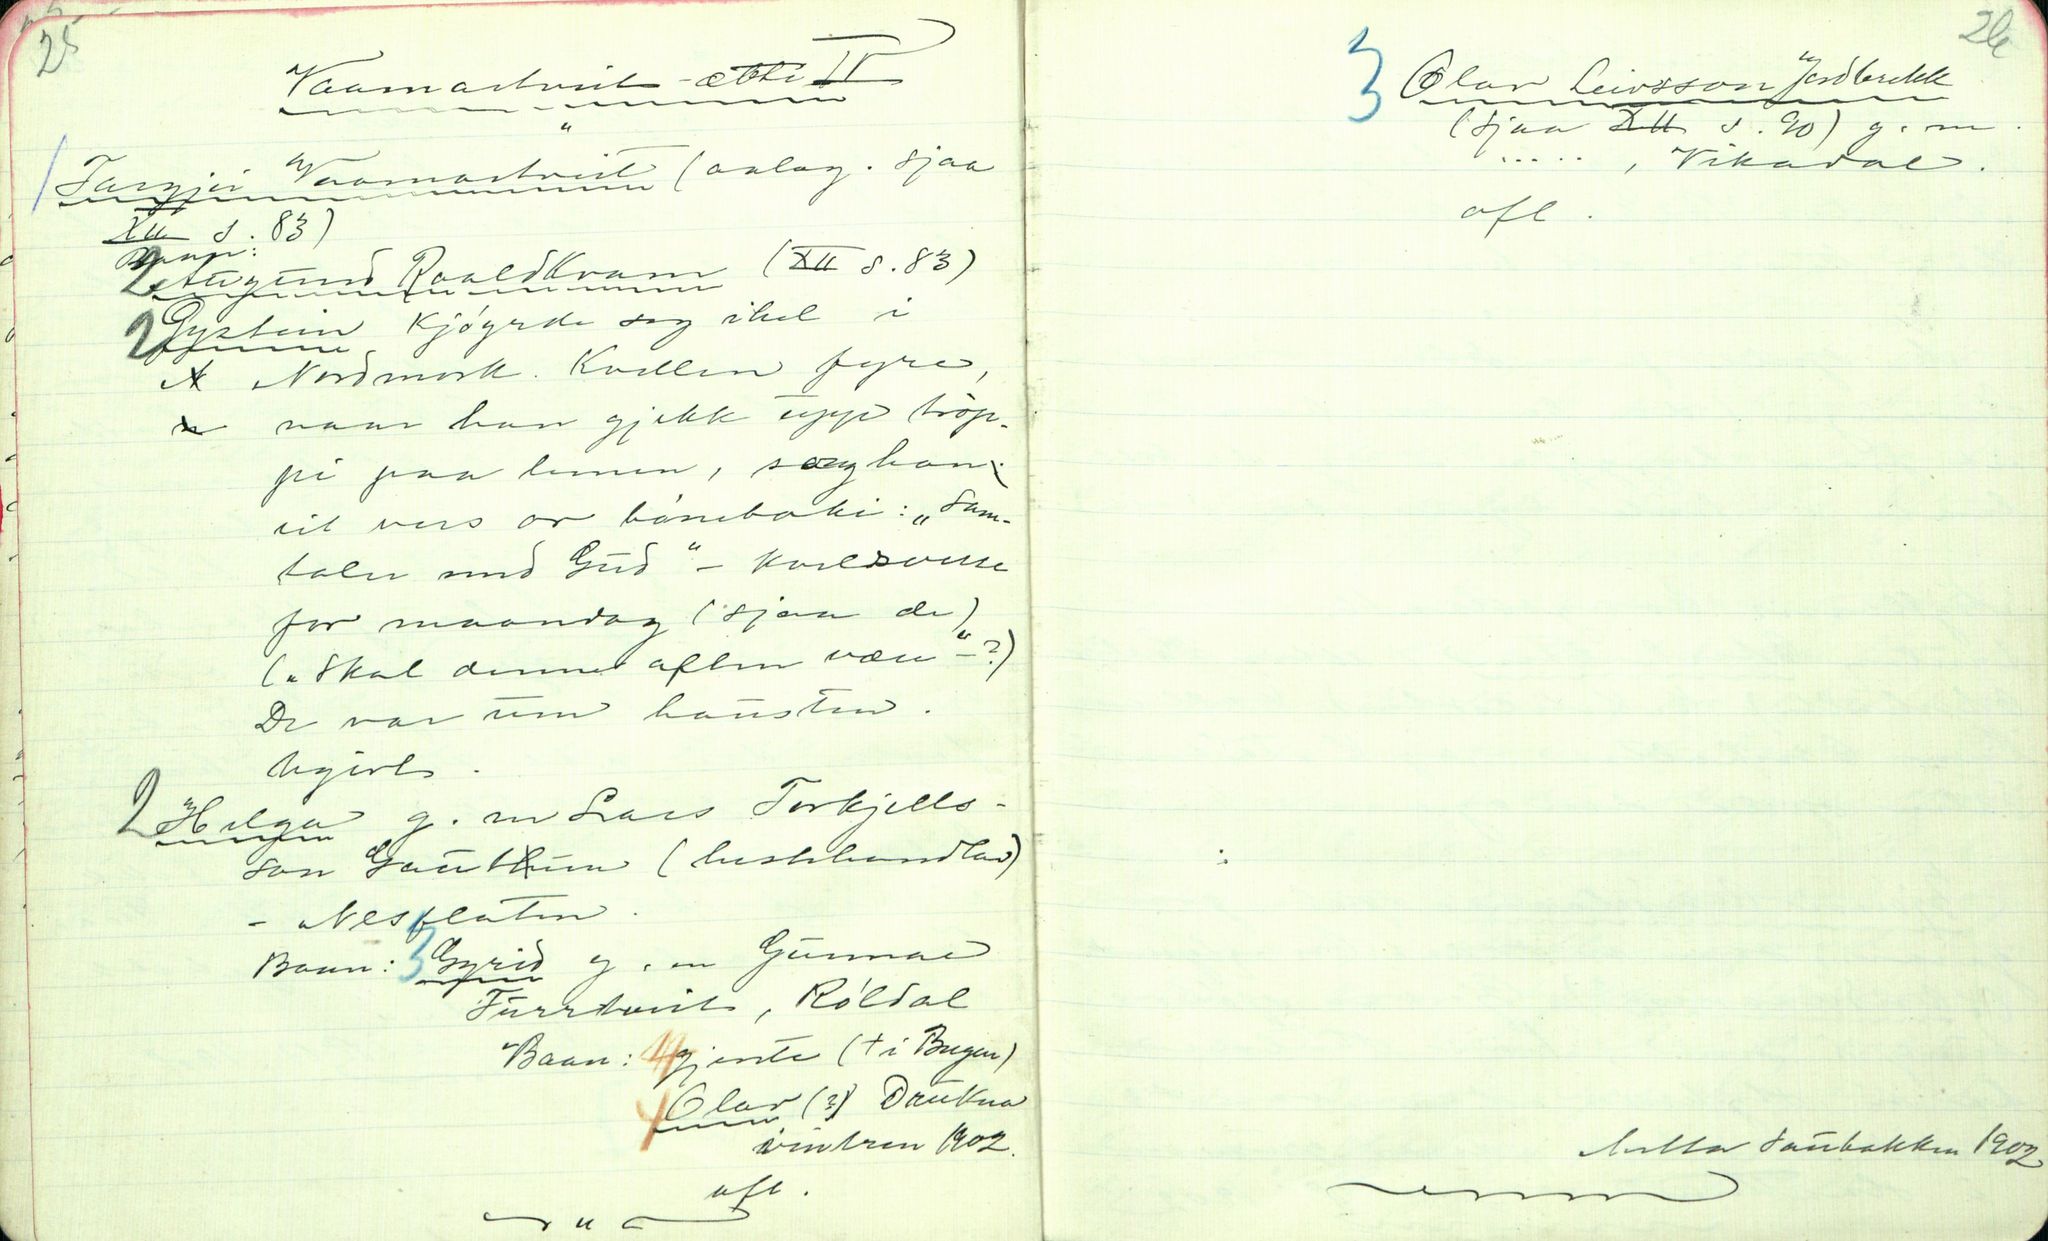 25
Vaamartveit-ætti IV
"
1 Targjei Vaamartveit (aalag. sjaa
XII s. 83)
Baan:
2 Augund Roaldkvam (XII s. 83)
2 Øystein kjóyrde seg ihel i
Nordmork. Kvellen fyre,
naar han gjekk upp tròp-
pi paa lemen, saag han
eit vers or bóneboki: „Sam-
taler med Gud" – kveldsverse
for maandag (sjaa de)
(„Skal denne aften være" – ?)
De var um hausten.
Ugift.
2 Helga g. m Lars Torkjells-
son Gautun (hestehandlar)
- Nesflaten.
Baan: 3 Gyrid g. m Gunnar
Turrtveit, Róldal
Baan: 4 gjente († i Bergen)
4 Olav (?) Drukna
vintren 1902.
ofl.
"
26
3 Olav Leivsson Jordbrekk
(sjaa XII s. 90) g. m.
....., Vikadal.
ofl.
Saubakken 1902